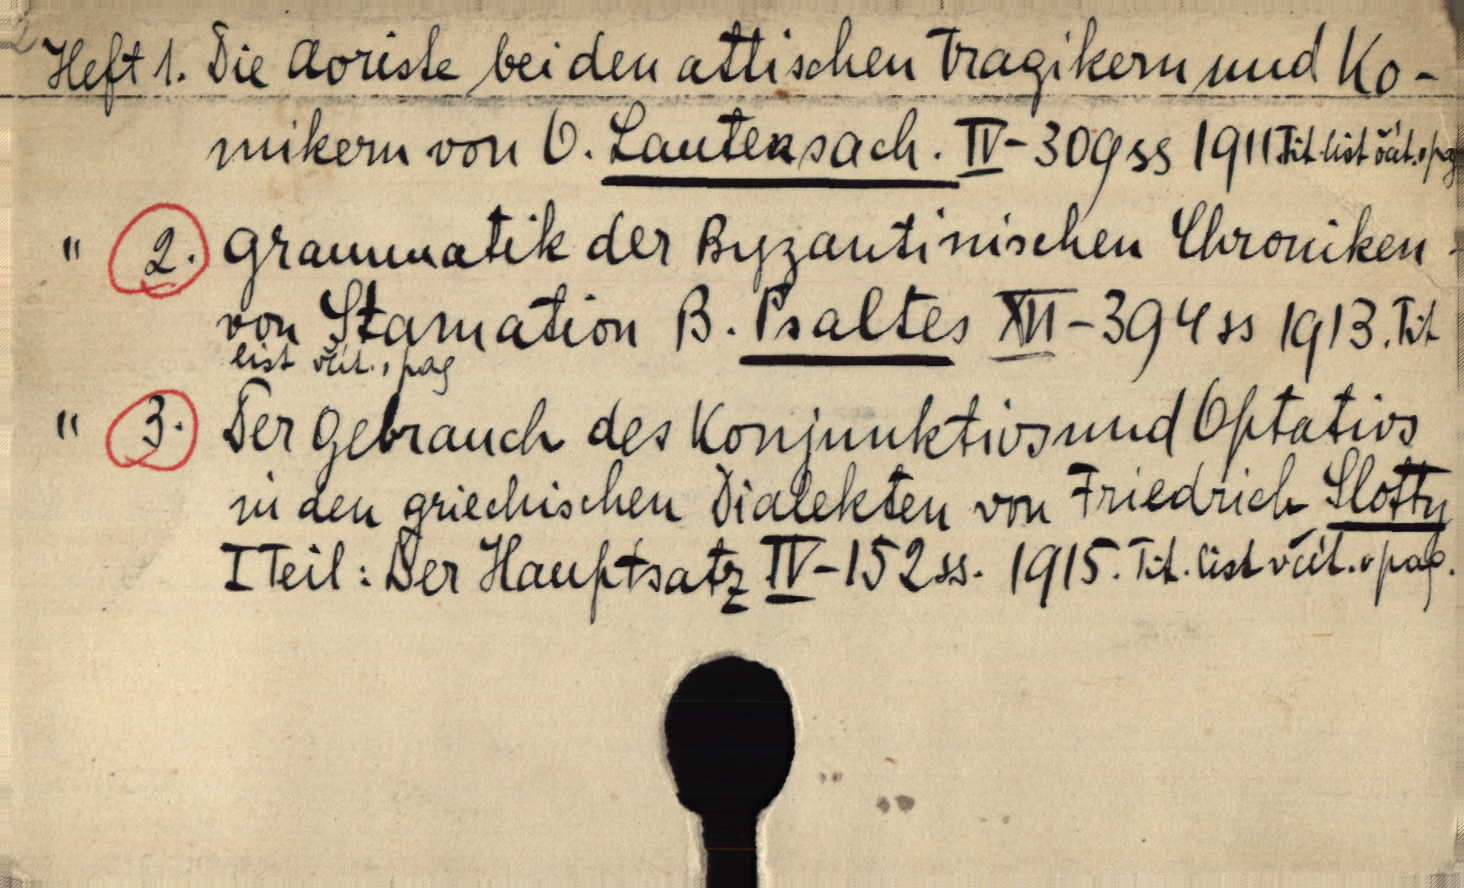 Heft 1. Die Aoriste bei den attischen Tragikern und Ko-
mikern von O. Lautensach. IV-309 ss 1911 Tit. list včít. v pag
" 2. Grammatik der Byzantinischen Chroniken -
von Stamation B. Psaltes XII-394 ss 1913. Tit
list včít. v pag
" 3. Der Gebrauch des Konjunktivs und Optativs
in den griechischen Dialekten von Friedrich Slotty
I Teil: Der Hauptsatz IV-152 ss. 1915. Tit. list včít. v pag.